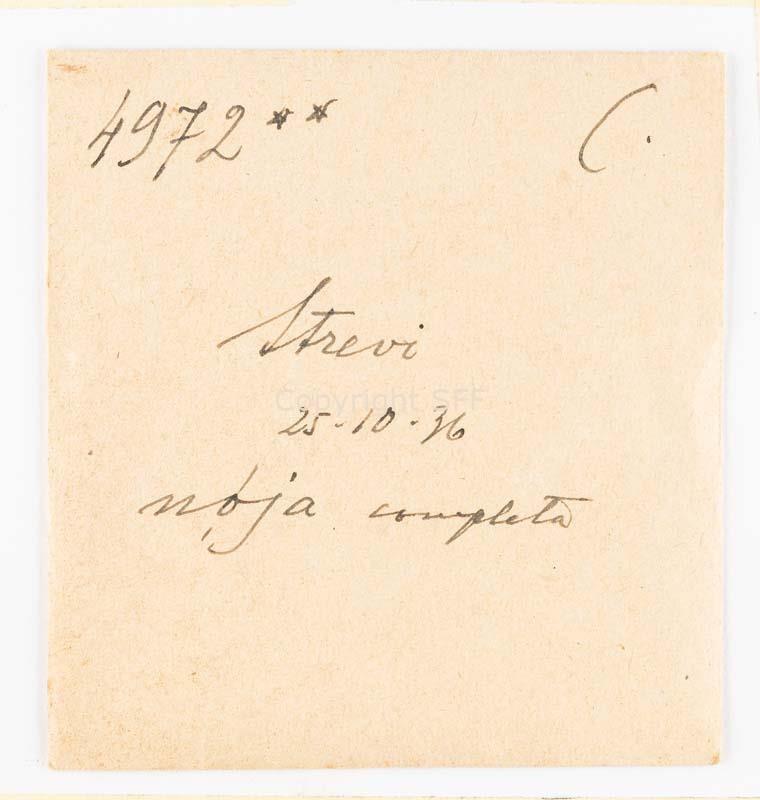 4972** C.
Strevi
Copyright SFF
25-10-36
nọ́ja completa